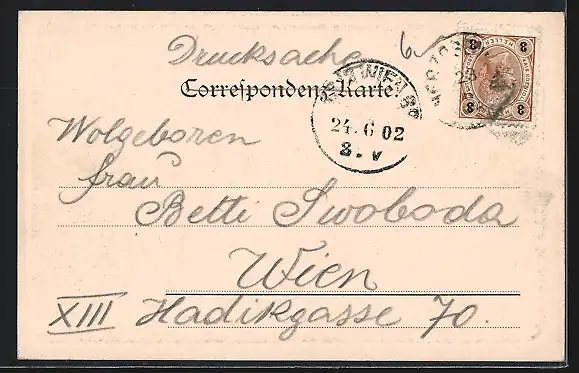 Drucksache
Correspondenz-Karte.
WIEN
24.6 02
8. V
8 8
HELLER
8 8
Wolgeboren
frau
Betti Swoboda
Wien
XIII Hadikgasse 70.